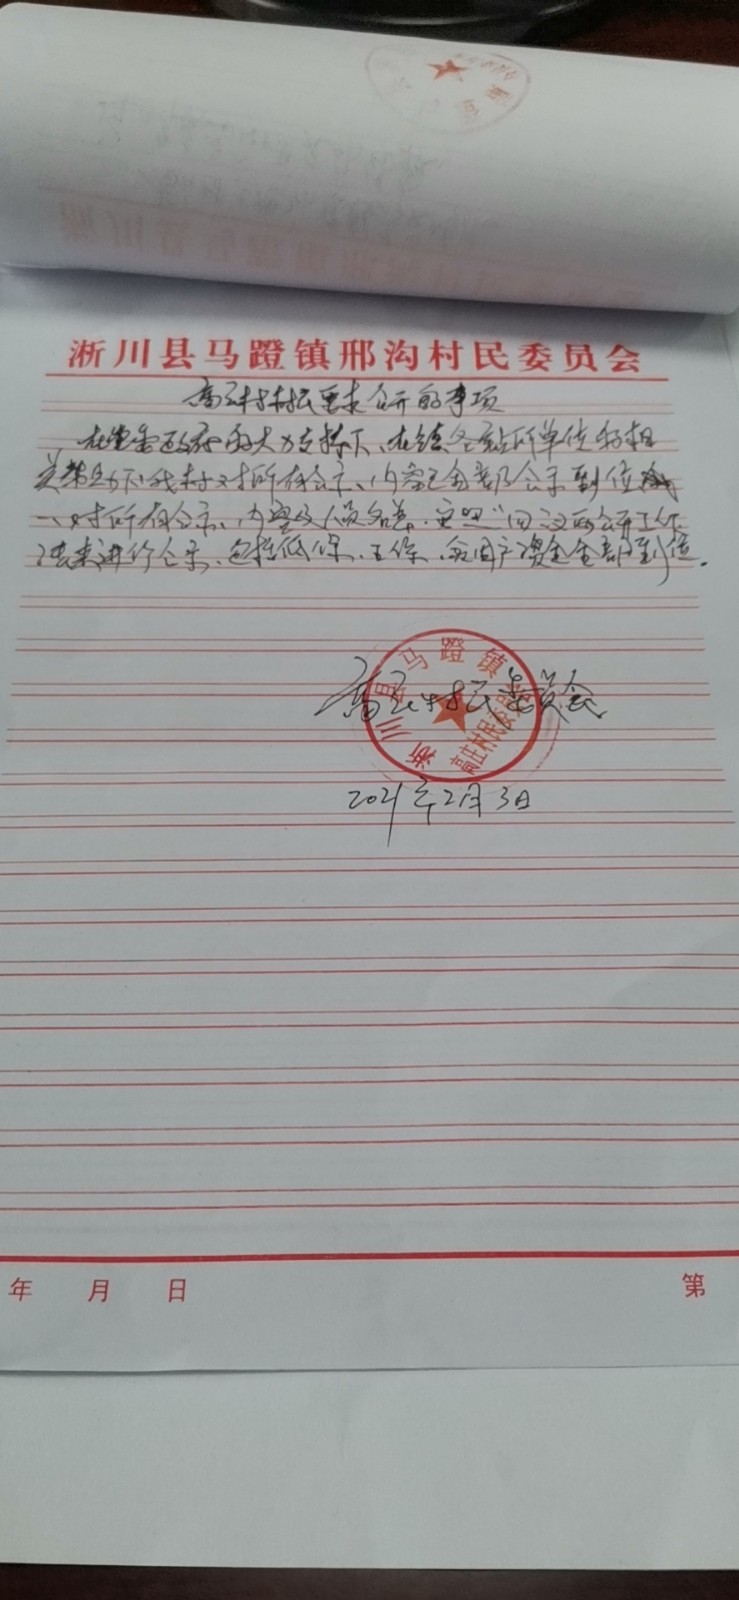 淅川县马蹬镇邢沟村民委员会
高庄村村民要求公开的事项
在党委政府的大力支持下、在镇各站所单位的相
关帮助下、我村对所有公示、内容已全部公示到位
一、对所有公示、内容及人员名单、按照"四议两公开"工作
法来进行公示、包括低保、五保、贫困户资金全部到位。
高庄村民委员会
淅川县马蹬镇
高庄村民委员会
2021年2月3日
年 月 日 第